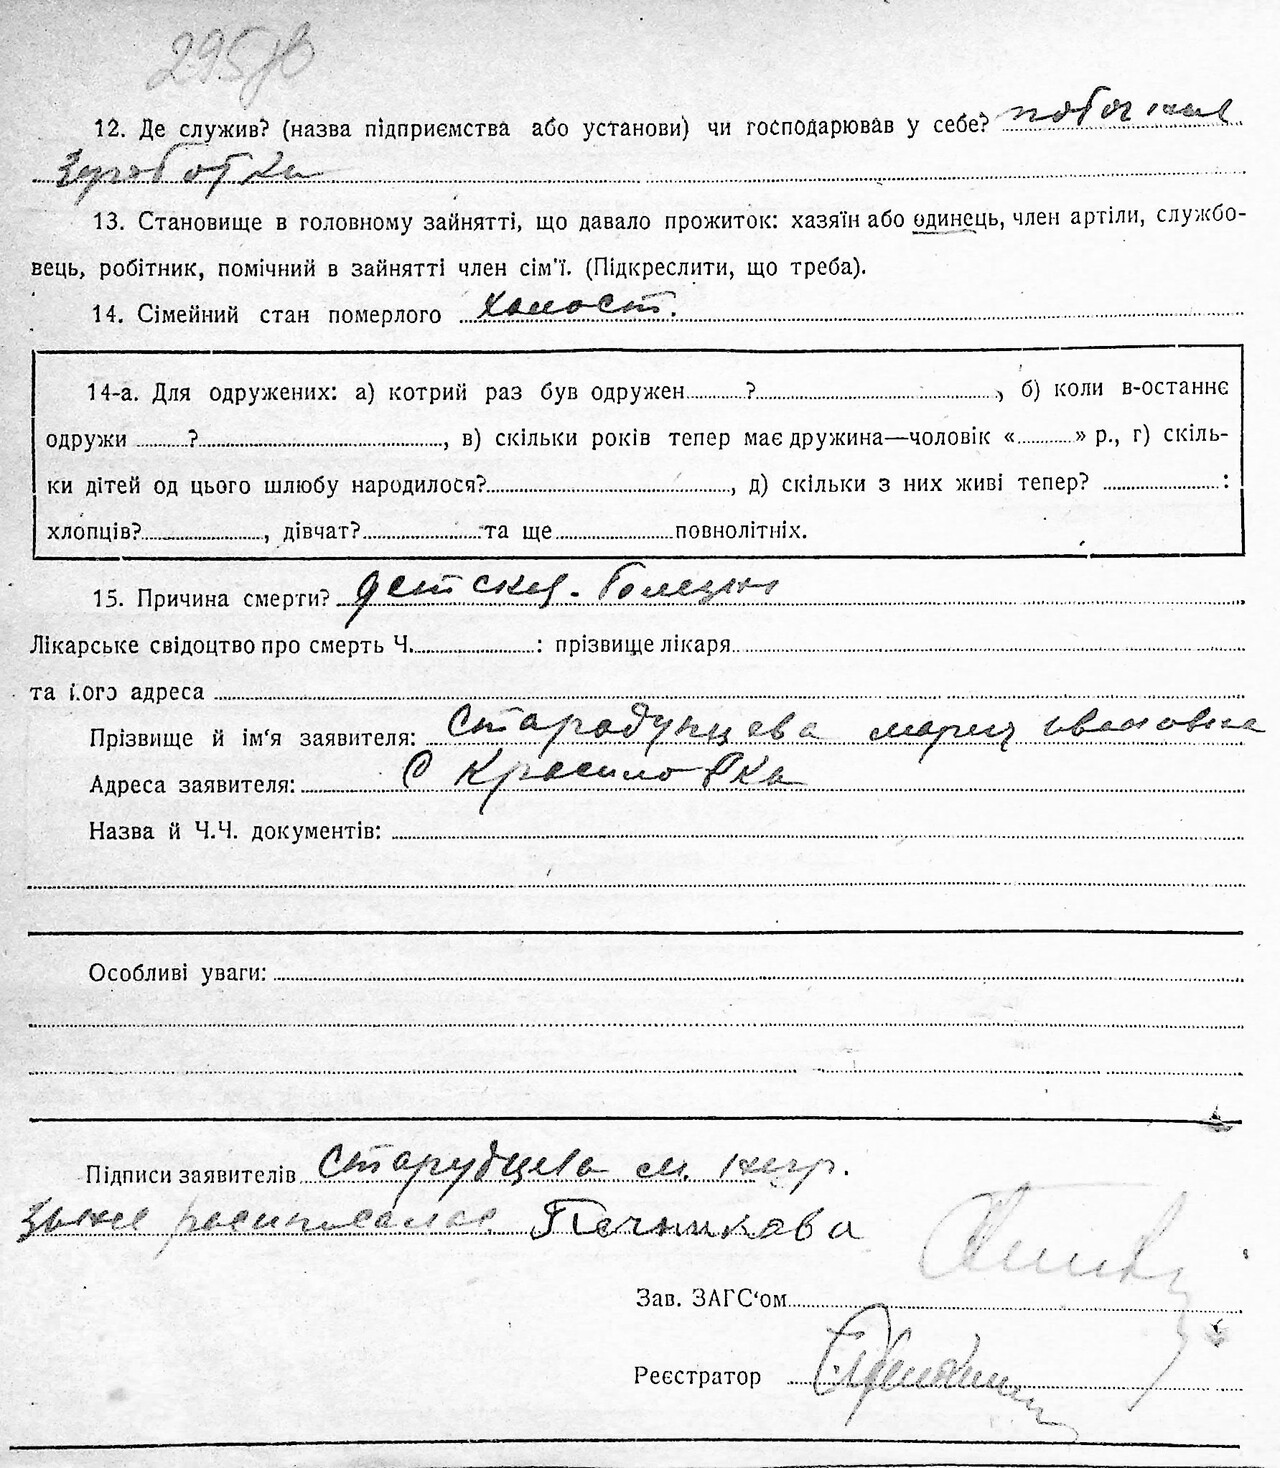 295
12. Де служив? (назва підприємства або установи) чи господарював у себе? побочния
Зароботки
13. Становище в головному зайнятті, що давало прожиток: хазяїн або одинець, член артіли, службо-
вець, робітник, помічний в зайнятті член сім'ї. (Підкреслити, що треба).
14. Сімейний стан померлого холост.
14-а. Для одружених: а) котрий раз був одружен ? , б) коли в-останнє
одружи ? , в) скільки років тепер має дружина—чоловік « » р., г) скіль-
ки дітей од цього шлюбу народилося? , д) скільки з них живі тепер? :
хлопців? , дівчат? та ще повнолітніх.
15. Причина смерти? детская. болезнь
Лікарське свідоцтво про смерть Ч. : прізвище лікаря
та його адреса
Прізвище й ім'я заявителя: Стародубцева мария ивановна
Адреса заявителя: С Красиловка
Назва й Ч.Ч. документів:
Особливі уваги:
Підписи заявителів Старубцева м. негр.
За нее росписалас Печникова
Зав. ЗАГС'ом
Реєстратор